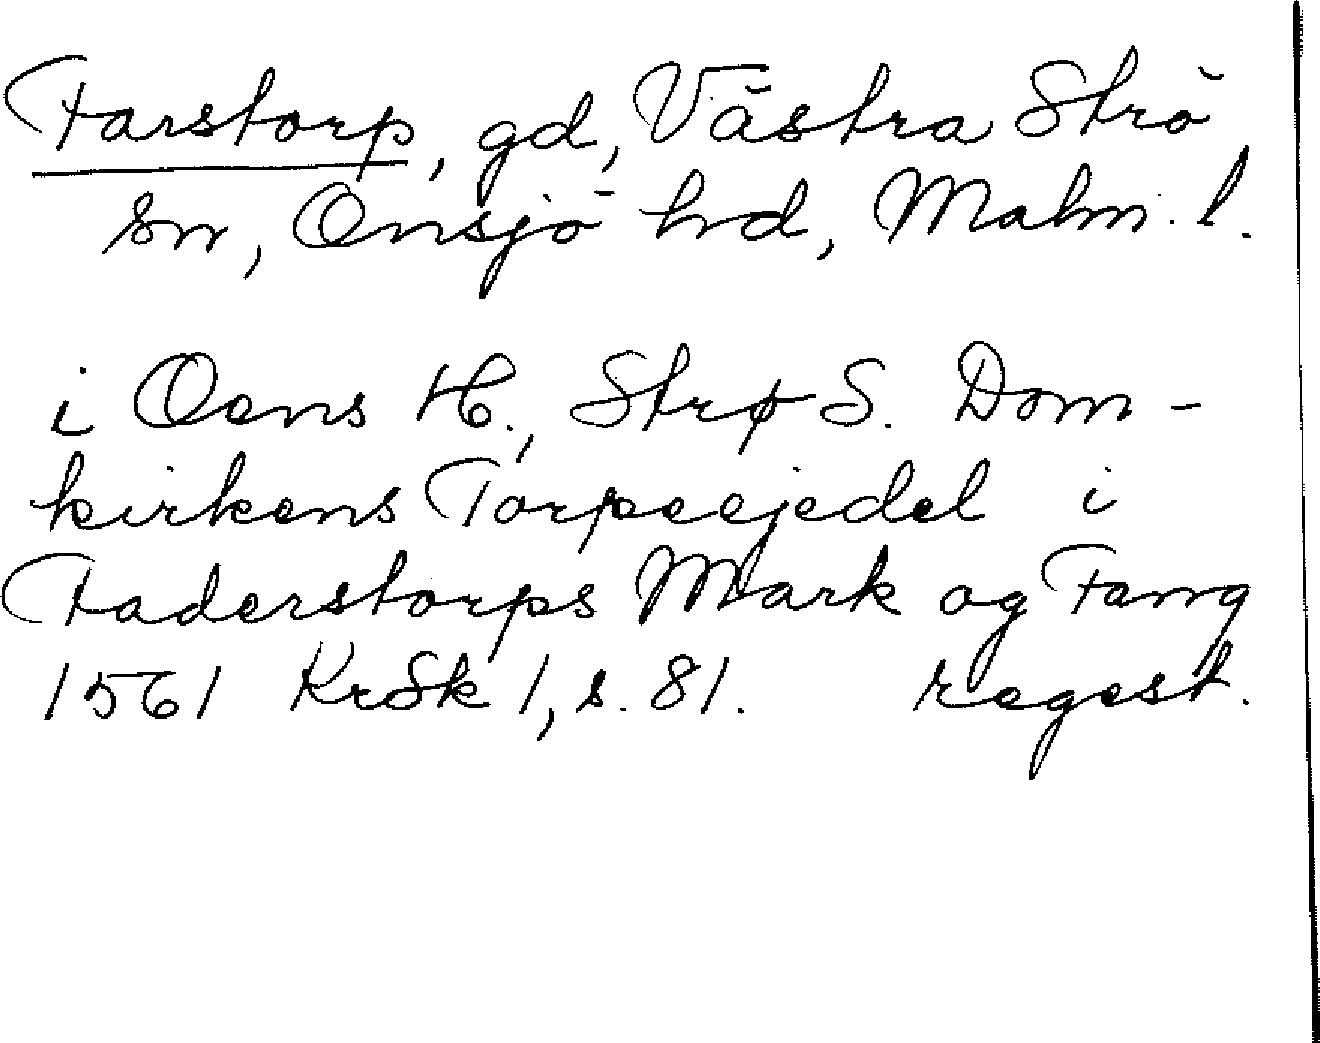 Farstorp, gd, Västra Strö
sn, Onsjö hd, Malm. l.
i Oens H., Strø S. Dom-
kirkens Torpeejedel i
Faderstorps Mark og Fang
1561 KrSk 1, s. 81. regest.